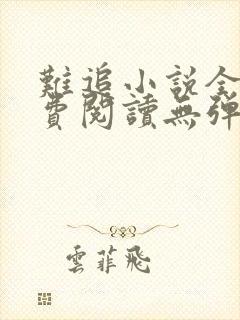 難追小說全
費閱讀無彈
雲菲飛